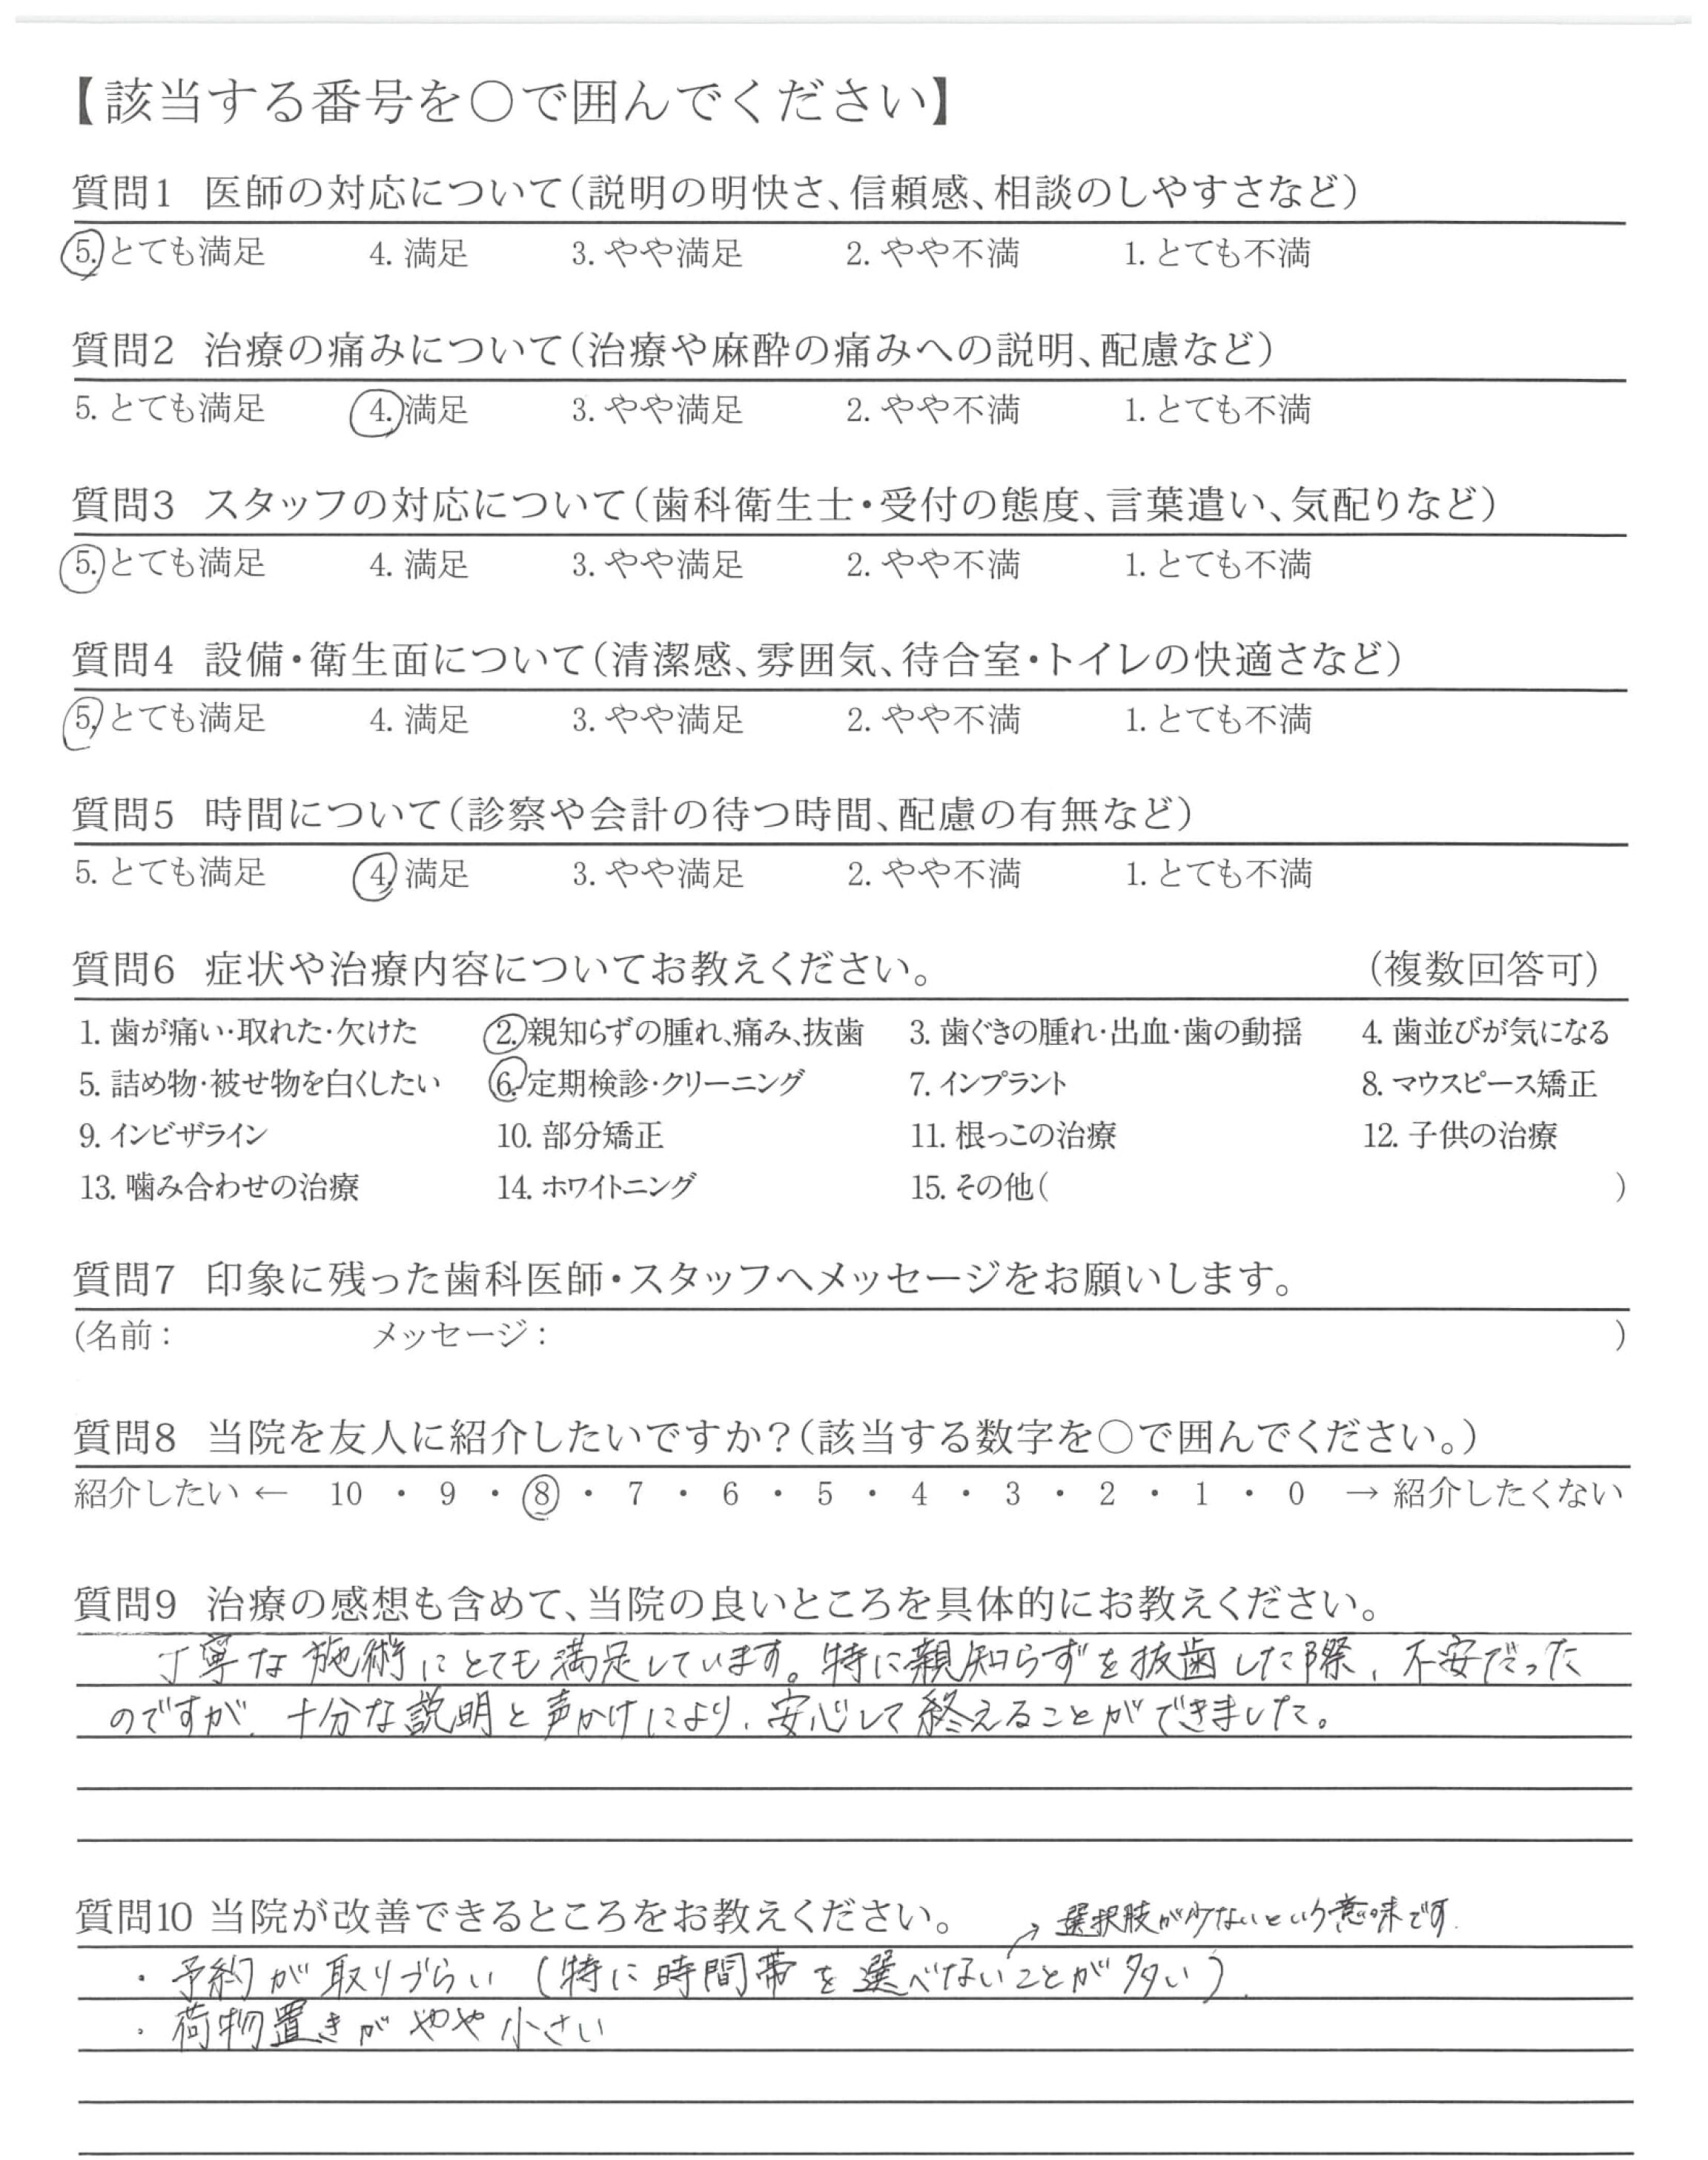 【該当する番号を〇で囲んでください】
質問1 医師の対応について(説明の明快さ、信頼感、相談のしやすさなど)
5. とても満足 4. 満足 3. やや満足 2. やや不満 1. とても不満
質問2 治療の痛みについて(治療や麻酔の痛みへの説明、配慮など)
5. とても満足 4. 満足 3. やや満足 2. やや不満 1. とても不満
質問3 スタッフの対応について(歯科衛生士・受付の態度、言葉遣い、気配りなど)
5. とても満足 4. 満足 3. やや満足 2. やや不満 1. とても不満
質問4 設備・衛生面について(清潔感、雰囲気、待合室・トイレの快適さなど)
5. とても満足 4. 満足 3. やや満足 2. やや不満 1. とても不満
質問5 時間について(診察や会計の待つ時間、配慮の有無など)
5. とても満足 4. 満足 3. やや満足 2. やや不満 1. とても不満
質問6 症状や治療内容についてお教えください。 (複数回答可)
1. 歯が痛い・取れた・欠けた 2. 親知らずの腫れ、痛み、抜歯 3. 歯ぐきの腫れ・出血・歯の動揺 4. 歯並びが気になる
5. 詰め物・被せ物を白くしたい 6. 定期検診・クリーニング 7. インプラント 8. マウスピース矯正
9. インビザライン 10. 部分矯正 11. 根っこの治療 12. 子供の治療
13. 噛み合わせの治療 14. ホワイトニング 15. その他( )
質問7 印象に残った歯科医師・スタッフへメッセージをお願いします。
(名前: メッセージ: )
質問8 当院を友人に紹介したいですか?(該当する数字を〇で囲んでください。)
紹介したい ← 10 ・ 9 ・ 8 ・ 7 ・ 6 ・ 5 ・ 4 ・ 3 ・ 2 ・ 1 ・ 0 → 紹介したくない
質問9 治療の感想も含めて、当院の良いところを具体的にお教えください。
丁寧な施術にとても満足しています。特に親知らずを抜歯した際、不安だった
のですが、十分な説明と声かけにより、安心して終えることができました。
質問10 当院が改善できるところをお教えください。
→ 選択肢が少ないという意味です.
・予約が取りづらい(特に時間帯を選べないことが多い).
・荷物置きがやや小さい